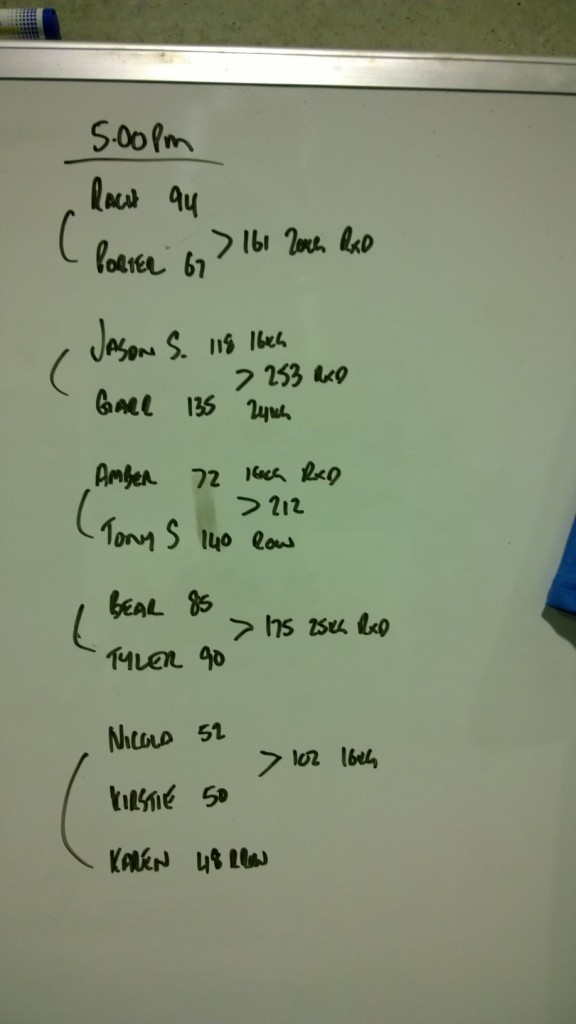 5.00Pm
RACH 94
> 161 20KG RXD
PORTER 67
JASON S. 118 16KG
> 253 RXD
GARR 135 24KG
AMBER 72 16KG RXD
> 212
TONY S 140 ROW
BEAR 85
> 175 25KG RXD
TYLER 90
52
> 102 16KG
KIRSTIE 50
KAREN 48